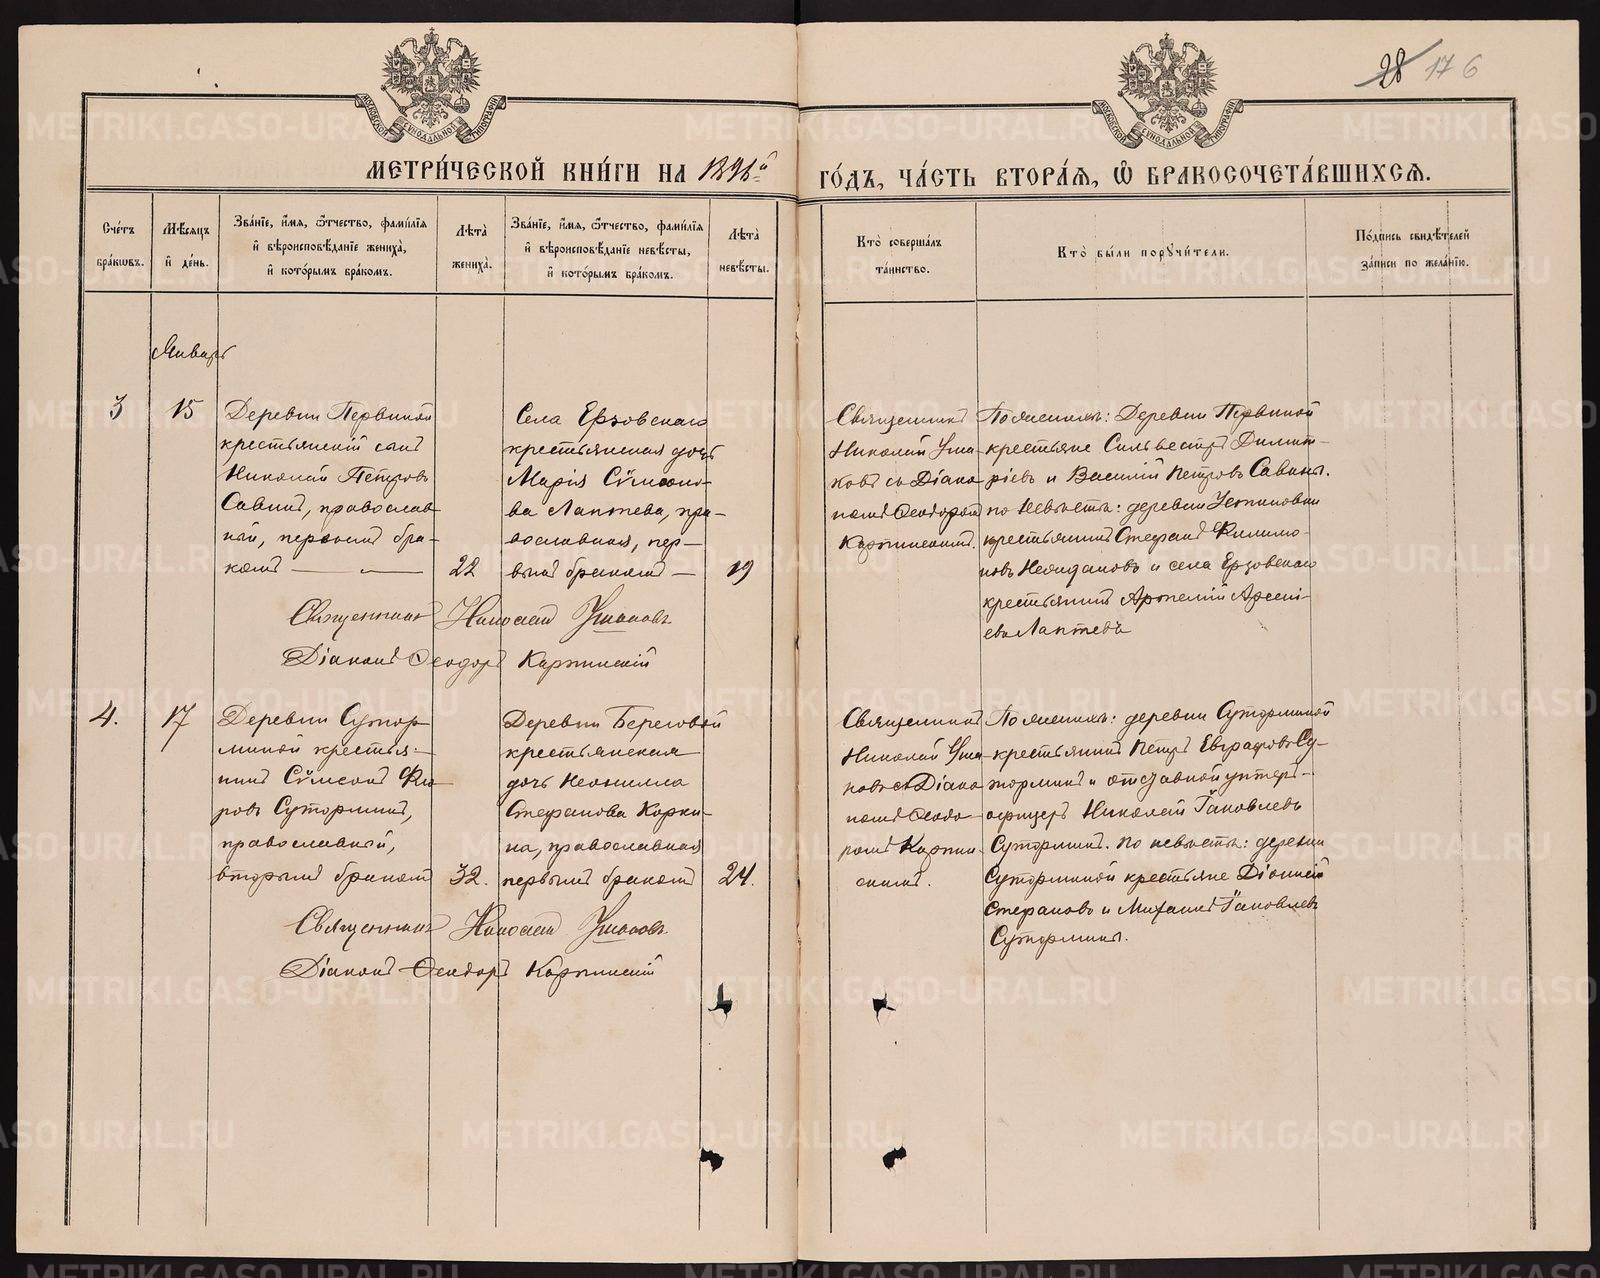 28 17 6
МЕТРИ́ЧЕСКОЙ КНИ́ГИ НА 1896й ГО́ДЪ, ЧА́СТЬ ВТОРА́Я, Ѿ БРАКОСОЧЕТА́ВШИХСЯ.
Сче́тъ бра́ковъ.
Мѣ́сяцъ и҆ де́нь.
Зва́нїе, и҆́мя, ѻ҆́тчество, фами́лїя
и҆ вѣроисповѣ́данїе жениха̀,
и҆ кото́рымъ бра́комъ.
Лѣ́та жениха̀.
Зва́нїе, и҆́мя, ѻ҆́тчество, фами́лїя
и҆ вѣроисповѣ́данїе невѣ́сты,
и҆ кото́рымъ бра́комъ.
Лѣ́та невѣ́сты.
Кто̀ соверша́лъ
та́инство.
Кто̀ бы́ли поручи́тели.
По́дпись свидѣ́телей
за́писи по жела́нїю.
Январь
3
15
Деревни Первиной
крестьянскій сынъ
Николай Петровъ
Савинъ, православ
ный, первымъ бра-
комъ
22
Села Ерзовскаго
крестьянская дочь
Марія Сѵмеоно-
ва Лаптева, пра-
вославная, пер-
вымъ бракомъ
19
Священникъ
Николай Уша
ковъ съ Діако
номъ Ѳеодоромъ
Карпинскимъ.
По женихѣ: Деревни Первиной
крестьяне Сильвестръ Димит-
ріевъ и Василій Петровъ Савины.
по невѣстѣ: деревни Устиновой
крестьянинъ Стефанъ Филимо-
новъ и села Ерзовскаго
крестьянинъ Артемій Арсені-
евъ Лаптевъ
Священникъ Николай Ушаковъ
Діаконъ Ѳеодоръ Карпинскій
4.
17
Деревни Сутор-
миной крестья-
нинъ Сѵмеонъ
ровъ Суторминъ,
православный,
вторымъ бракомъ
32.
Деревни Береговой
крестьянская
дочь Неонилла
Стефанова Корки-
на, православная
первымъ бракомъ
24.
Священникъ
Николай Уша
ковъ съ Діако
номъ Ѳеодо-
ромъ Карпин
скимъ.
По женихѣ: деревни Суторминой
крестьянинъ Петръ Евграфовъ Су-
торминъ и отставной унтеръ-
офицеръ Николай Іаковлевъ
Суторминъ. По невѣстѣ: деревни
Суторминой крестьяне Діонисій
Стефановъ и Михаилъ Іаковлевъ
Сутормины.
Священникъ Николай Ушаковъ
Діаконъ Ѳеодоръ Карпинскій
METRIKI.GASO-URAL.RU